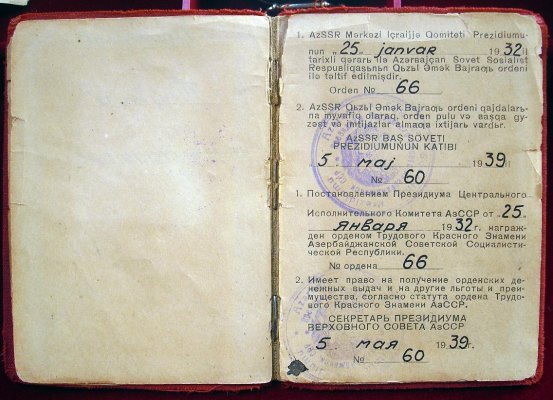 1. AzSSR Mərkəzi Içraijjə Qomiteti Prezidiumu-
nun „25" janvar 1932 il
tarixli qərarь ilə Azərbajçan Sovet Sosialist
Respuвlikasьnьn Qьzьl Əmək Bajraƣь ordeni
ilə təltif edilmişdir.
Orden № 66
2. AzSSR Qьzьl Əmək Bajraƣь ordeni qajdalarь-
na myvafiq olaraq, orden pulu və вaşqa gy-
zəşt və imtijazlar almaƣa ixtijarь vardьr.
AzSSR BAŞ SOVETI
PREZIDIUMUNUN KATIBI
„5 maj 1939 il
№ 60
1. Постановлением Президиума Центрального
Исполнительного Комитета АзССР от „25"
января 1932 г. награж-
ден орденом Трудового Красного Знамени
Азербайджанской Советской Социалисти-
ческой Республики.
№ ордена 66
2. Имеет право на получение орденских де-
нежных выдач и на другие льготы и преи-
мущества, согласно статута ордена Трудо-
вого Красного Знамени АзССР.
СЕКРЕТАРЬ ПРЕЗИДИУМА
ВЕРХОВНОГО СОВЕТА АзССР
5 мая 1939 г.
№ 60